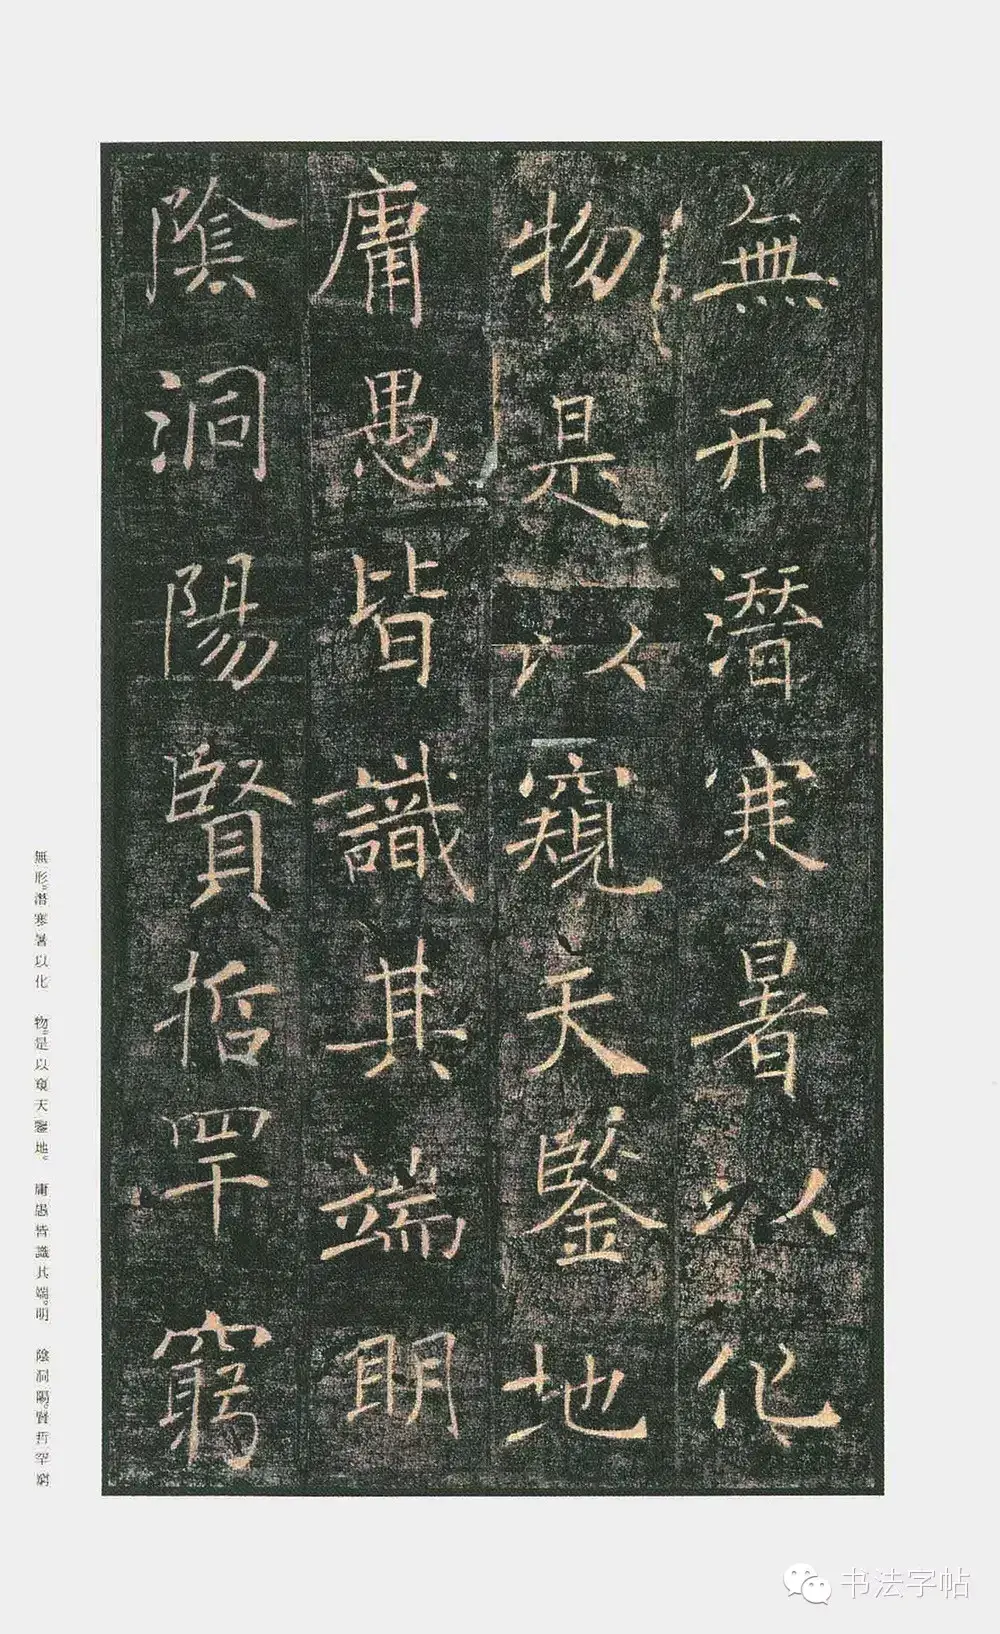 無形潛寒暑以化
物是以窺天鑒地
庸愚皆識其端明
陰洞陽賢哲罕窮
無形。潛寒暑以化 物。是以窺天鑒地。庸愚皆識其端。明 陰洞陽。賢哲罕窮
书法字帖